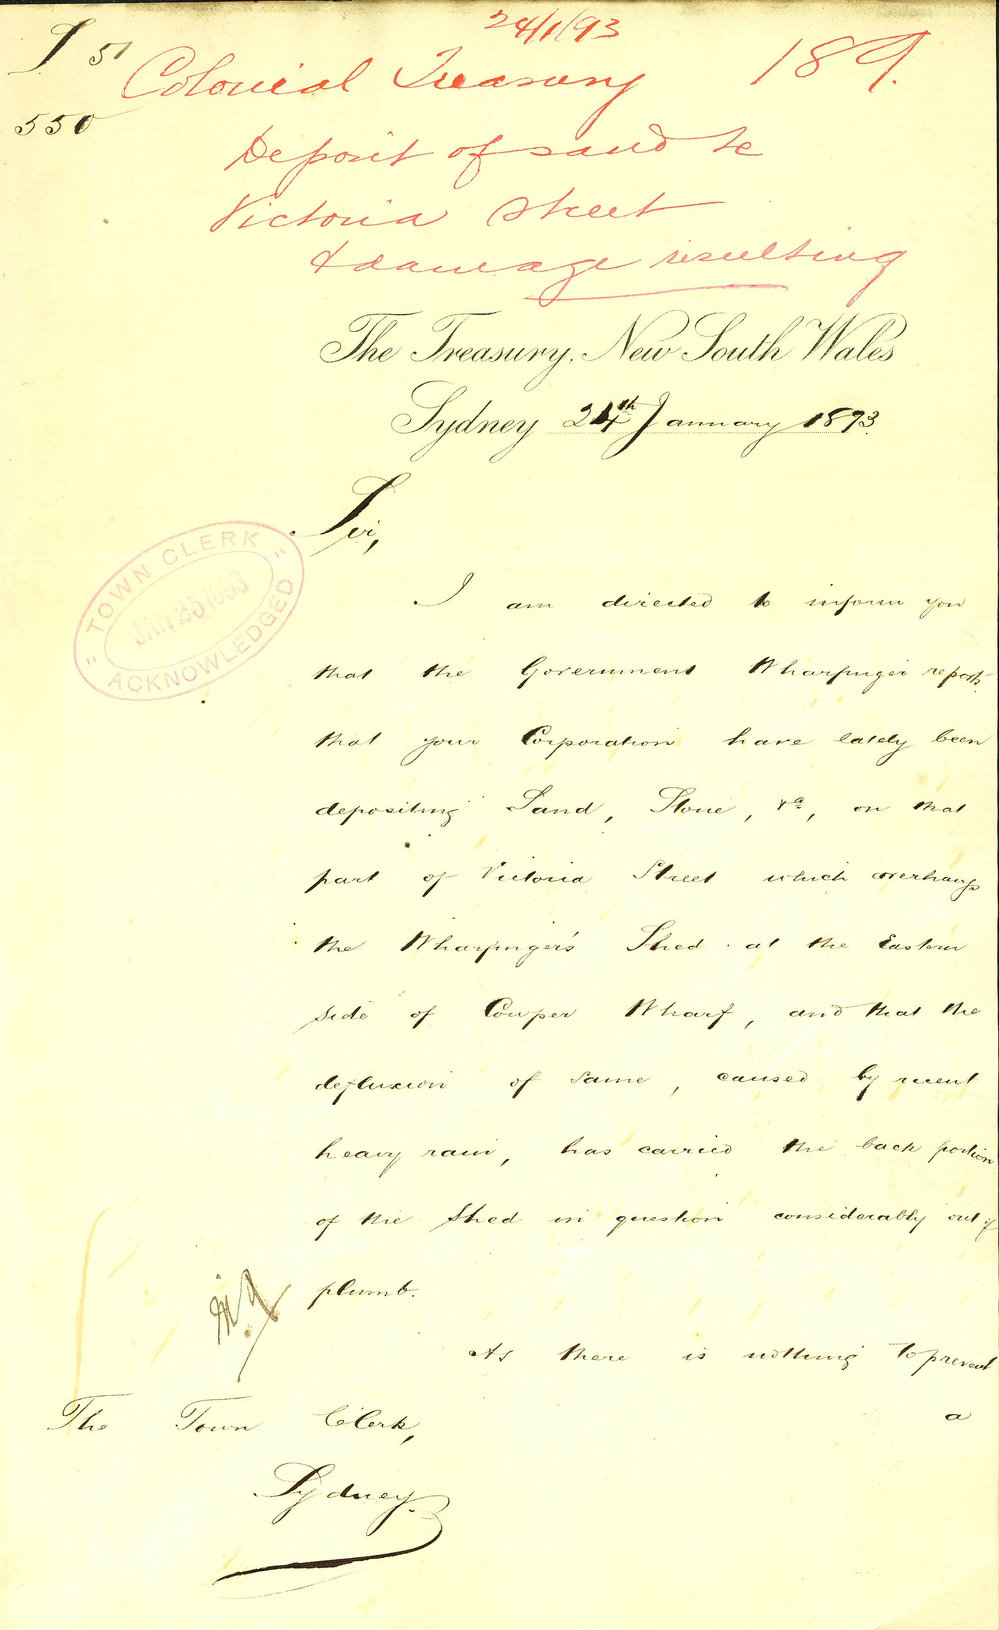 24/1/93
S 51
Colonial Treasury 189.
550
Deposit of sand &c
Victoria Street
& damage resulting
The Treasury, New South Wales
Sydney 24th January 1893
Sir,
"TOWN CLERK"
JAN 25 1893
ACKNOWLEDGED
I am directed to inform you
that the Government Wharfinger reports
that your Corporation have lately been
depositing Sand, Stone, &a, on that
part of Victoria Street which overhangs
the Wharfinger's Shed at the Eastern
side of Cowper Wharf, and that the
defluxion of same, caused by recent
heavy rain, has carried the back portion
of the Shed in question considerably out of
plumb.
As there is nothing to prevent
a
The Town Clerk,
Sydney.